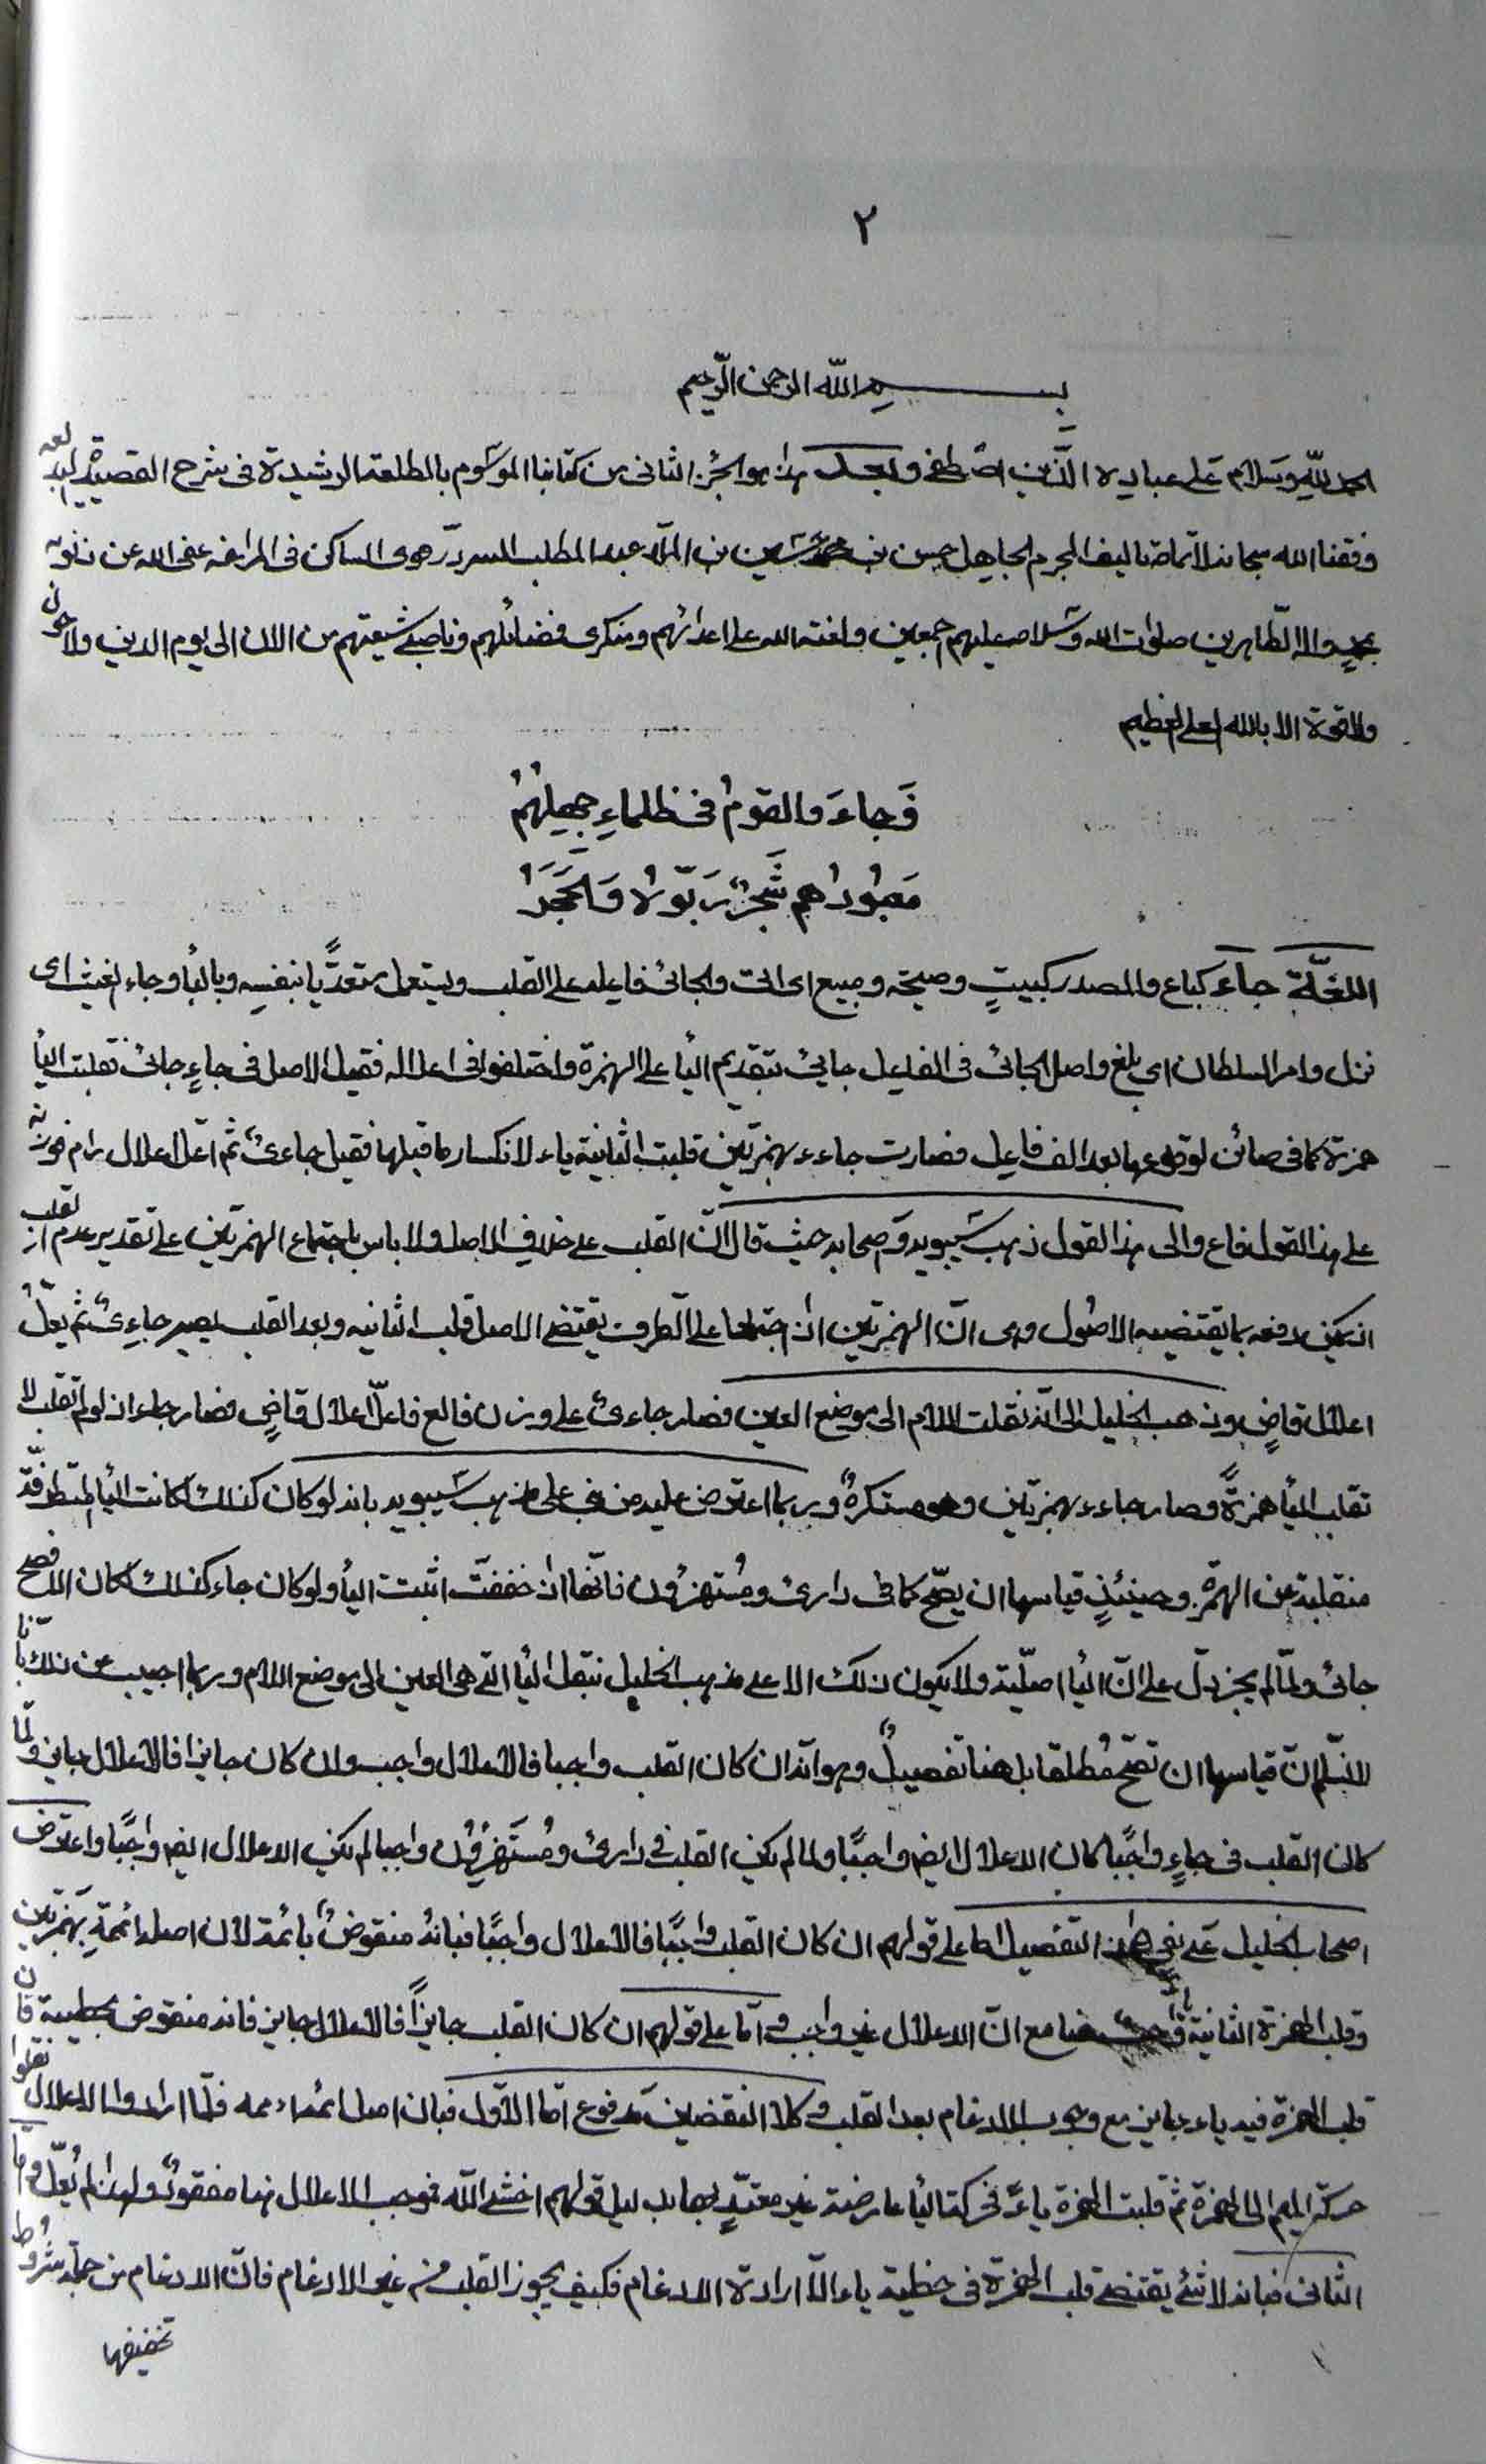 ٢
بسم الله الرحمن الرحيم
الحمد لله وسلام على عباده الذين اصطفى وبعد هذا هو الجزء الثاني من كتابنا الموسوم بالمطلعة الرشيدة في شرح القصيدة
وفقنا الله سبحانه لاتمامه تاليف المجرم الجاهل حسن بن محمد حسين بن الملا عبد المطلب السردرودى الساكن في المراغه عفى الله عن ذنوبه
بمحمد واله الطاهرين صلوات الله وسلامه عليهم اجمعين ولعنة الله على اعدائهم ومنكرى فضائلهم وناصبى شيعتهم من الان الى يوم الدين ولا حول
ولا قوة الا بالله العلى العظيم
فَجاءَ والقومُ في ظلماءِ جهلِهُمُ
مَعبُودُهم شَجَرٌ رَبَّوْا وَالحَجَرُ
اللغة جاءَ كباع والمصدر كبيتٍ وصيحة ومبيع اى اتى والجائى فاعله على القلب ويستعمل متعدّيا بنفسه وبالبأ وجاء الغيث اى
نزل وامر السلطان اى بلغ واصل الجائى في الفاعل جايئ بتقديم اليأ على الهمزة واختلفوا في اعلاله فقيل الاصل في جاءٍ جائ فقلبت اليأ
همزة كما في صائن لوقوعها بعد الف فاعل فصارت جاءء بهمزتين قلبت الثانية ياء لانكسار ما قبلها فقيل جاءىٌ ثم اعلّ اعلال رام فوزنه
على هذا القول فاع والى هذا القول ذهب سيبويه واصحابه حيث قال انّ القلب على خلاف الاصل ولا باس باجتماع الهمزتين على تقدير عدم القلب اذ
يمكن دفعه بما يقتضيه الاصول وهى انّ الهمزتين اذا اجتمعا على الطرف يقتضى الاصل قلب الثانيه وبعد القلب يصير جاءِىٌ ثم يعلّ
اعلال قاضٍ وذهب الخليل الى انه نقلت اللام الى موضع العين فصار جاءىٌ على وزن فالع فاعلّ اعلال قاضٍ فصار جاء اذ لو لم تقلب لا
تقلب اليأ همزةً وصار جاءء بهمزتين وهو مستكرهٌ وربما اعترض عليه من على مذهب سيبويه بانه لو كان كذلك لكانت اليأ المتطرفة
منقلبة عن الهمزة وحينئذٍ قياسها ان يصحّ كما في دارئ ومُستهزؤن فانّها اذا خففت اثبتت اليأ ولو كان جاء كذلك لكان الافصح
جائى ولمّا لم يجز دلّ على انّ اليأ اصليّة ولا يكون ذلك الا على مذهب الخليل بنقل اليأ التى هى العين الى موضع اللام وربما اجيب عن ذلك بأنّا
لا نسلّم انّ قياسها ان تصحّ مطلقا بل هنا تفصيلٌ وهو انّه ان كان القلب واجبا فالاعلال واجب وان كان جايزا فالاعلال جايز ولمّا
كان القلب في جاءٍ واجبًا كان الاعلال ايضا واجبًا ولما لم يكن القلب في دارئ ومُستهزِؤُن واجبا لم يكن الاعلال ايضا واجبًا واعترض
اصحاب الخليل على نفى هذا التفصيل اما على قولهم ان كان القلب واجبًا فالاعلال واجبًا فبانه منقوضٌ بائمة لان اصل ائمةٍ بهمزتين
وقلب الهمزة الثانية واجب هنا مع انّ الاعلال غير واجب و امّا على قولهم ان كان القلب جايزاً فالاعلال جايز فانه منقوض بخطيية فان
قلب الهمزة فيه ياء جايز مع وجوب الادغام بعد القلب وكلا النقضين مدفوع امّا الاوّل فبان اصل ائمة اءممه فلمّا ارادوا الاعلال نقلوا
حركة الميم الى الهمزة ثم قلبت الهمزة ياءً فحركة اليأ عارضة غير معتدّ بها بدليل قولهم اخشى الله فموجب الاعلال هنا مفقودٌ ولهذا لم يُعلّ واما
الثانى فبانه لا شئ يقتضى قلب الهمزة في خطية ياء الّا ارادة الادغام فكيف يجوز القلب من غير الادغام فانّ الادغام من جملة شروط
تخفيفها